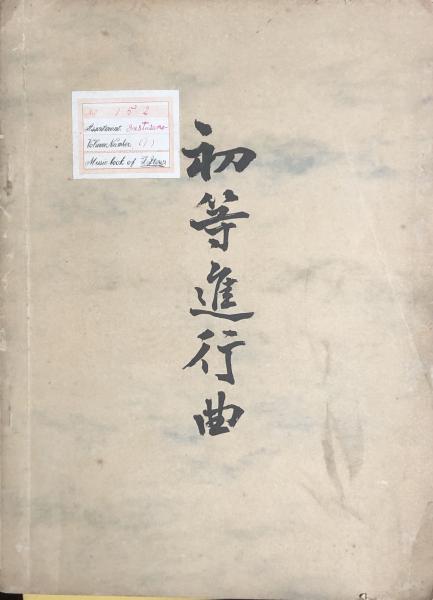 No 152
Assortment
Volume Number (1)
Music book of
初等進行曲